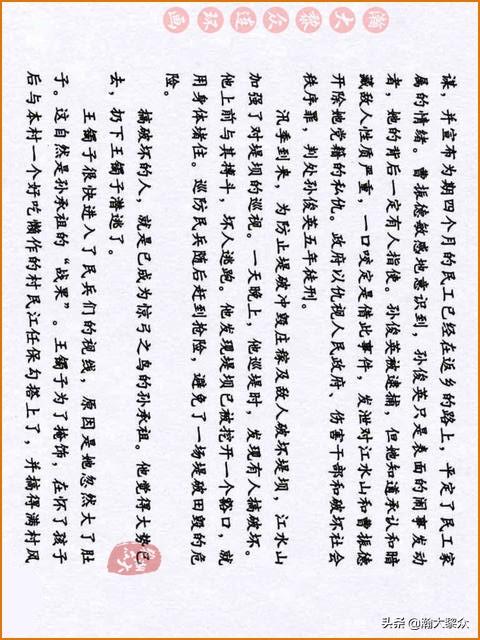 瀚大黎众连环画
谋，并宣布为期四个月的民工已经在返乡的路上，平定了民工家
属的情绪。曹振德敏感地意识到，孙俊英只是表面的闹事发动
者，她的背后一定有人指使。孙俊英被逮捕，但她知道承认和暗
藏敌人性质严重，一口咬定是借此事件，发泄对江水山和曹振德
开除她党籍的私仇。政府以仇视人民政府、伤害干部和破坏社会
秩序罪，判处孙俊英五年徒刑。
汛季到来，为防止堤破冲毁庄稼及敌人破坏堤坝，江水山
加强了对堤坝的巡视。一天晚上，他巡堤时，发现有人搞破坏。
他上前与其搏斗，坏人逃跑。他发现堤坝已被挖开一个豁口，就
用身体堵住。巡防民兵随后赶到抢险，避免了一场堤破田毁的危
险。
搞破坏的人，就是已成为惊弓之鸟的孙承祖。他觉得大势已
去，扔下王镯子潜逃了。
王镯子很快进入了民兵们的视线，原因是她忽然大了肚
子。这自然是孙承祖的“战果”。王镯子为了掩饰，在怀了孩子
后与本村一个好吃懒作的村民江任保勾搭上了，并搞得满村风
头条 @瀚大黎众